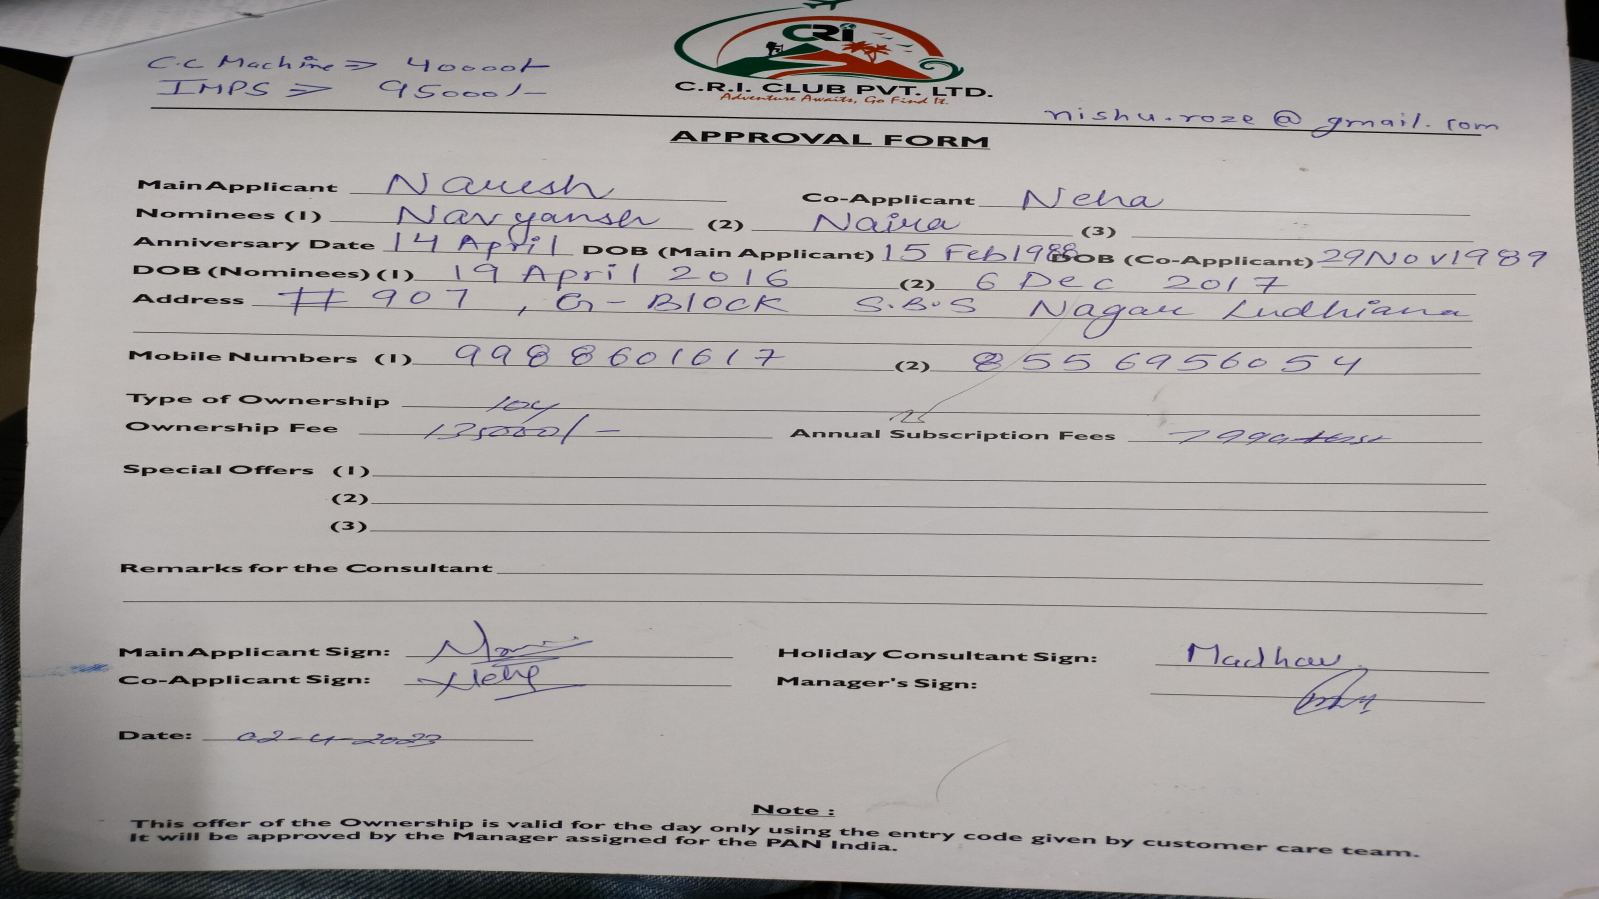 C.C Machine => 40000/-
IMPS => 95000/-
CRi
C.R.I. CLUB PVT. LTD.
Adventure Awaits, Go Find It.
nishu.roze@gmail.com
APPROVAL FORM
Main Applicant Naresh Co-Applicant Neha
Nominees (1) Navyansh (2) Naira (3)
Anniversary Date 14 April DOB (Main Applicant) 15 Feb 1988 DOB (Co-Applicant) 29 Nov 1989
DOB (Nominees) (1) 19 April 2016 (2) 6 Dec 2017
Address # 907, G-Block S.B.S Nagar Ludhiana
Mobile Numbers (1) 9988601617 (2) 8556956054
Type of Ownership 10y
Ownership Fee 135000/- Annual Subscription Fees
Special Offers (1)
(2)
(3)
Remarks for the Consultant
Main Applicant Sign: Holiday Consultant Sign: Madhav
Co-Applicant Sign: Neha Manager's Sign:
Date: 02-4-2023
Note :
This offer of the Ownership is valid for the day only using the entry code given by customer care team.
It will be approved by the Manager assigned for the PAN India.